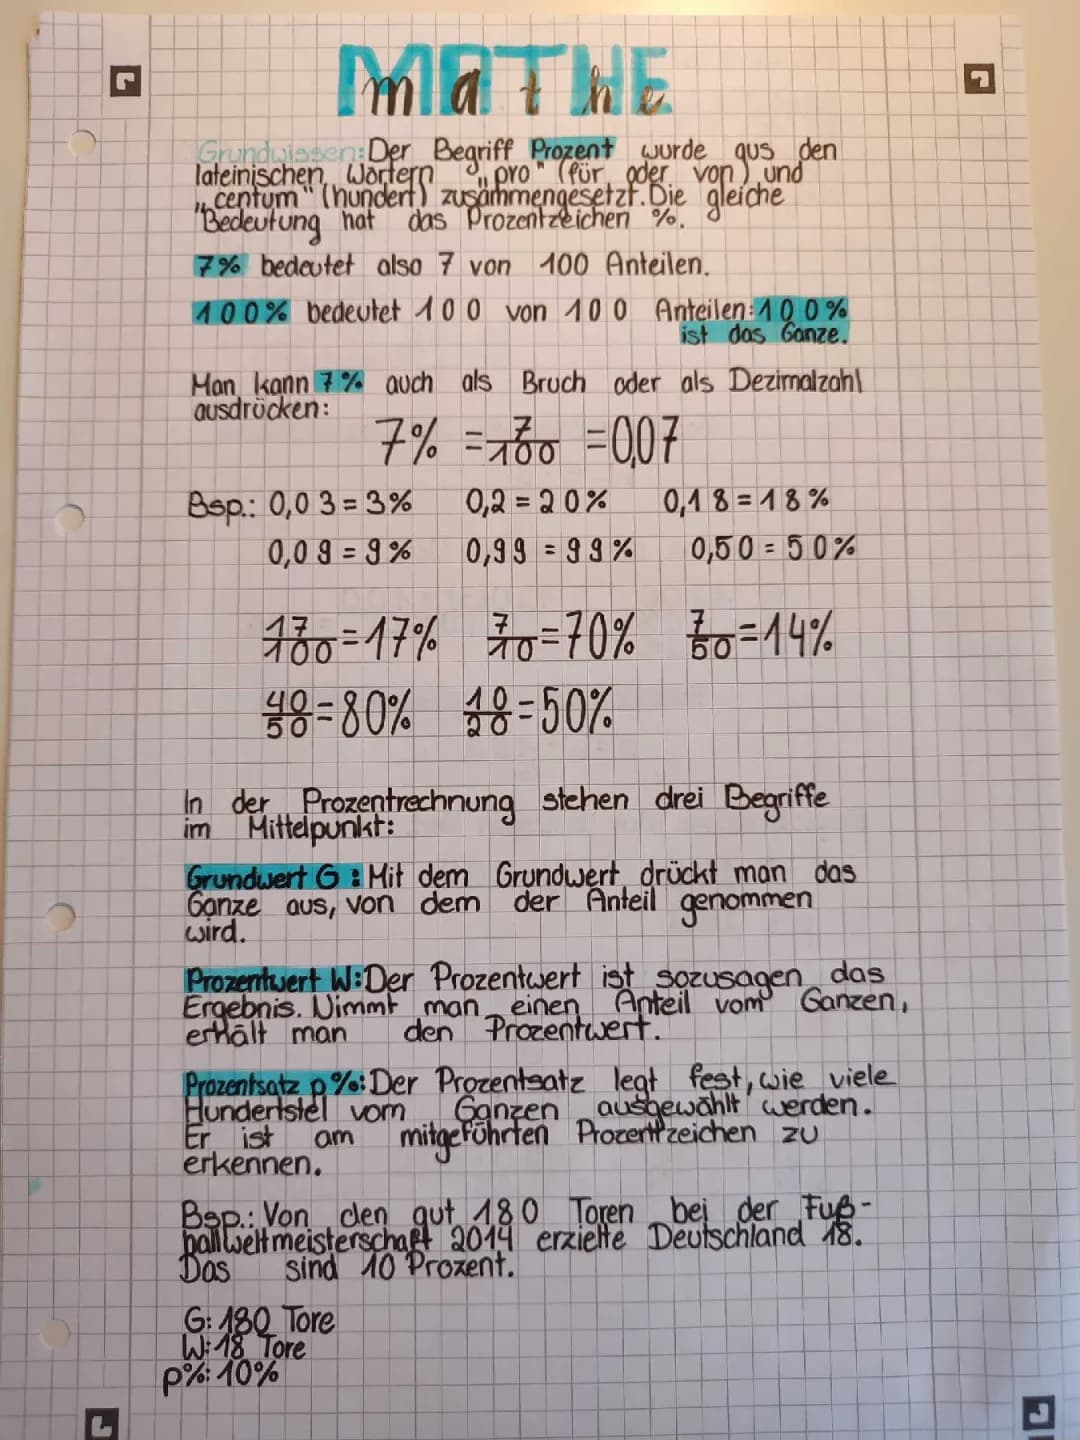 MATHE
mathe
Grundwissen: Der Begriff Prozent wurde aus den
lateinischen Wörtern „pro" (für oder von) und
„centum" (hundert) zusammengesetzt. Die gleiche
Bedeutung hat das Prozentzeichen %.
7% bedeutet also 7 von 100 Anteilen.
100% bedeutet 100 von 100 Anteilen: 100%
ist das Ganze.
Man kann 7% auch als Bruch oder als Dezimalzahl
ausdrücken:
7% = 7/100 = 0,07
Bsp.: 0,03 = 3% 0,2 = 20% 0,18 = 18%
0,09 = 9% 0,99 = 99% 0,50 = 50%
17/100 = 17% 7/10 = 70% 7/50 = 14%
40/50 = 80% 10/20 = 50%
In der Prozentrechnung stehen drei Begriffe
im Mittelpunkt:
Grundwert G: Mit dem Grundwert drückt man das
Ganze aus, von dem der Anteil genommen
wird.
Prozentwert W: Der Prozentwert ist sozusagen das
Ergebnis. Nimmt man einen Anteil vom Ganzen,
erhält man den Prozentwert.
Prozentsatz p%: Der Prozentsatz legt fest, wie viele
Hundertstel vom Ganzen ausgewählt werden.
Er ist am mitgeführten Prozentzeichen zu
erkennen.
Bsp.: Von den gut 180 Toren bei der Fuß-
ballweltmeisterschaft 2014 erzielte Deutschland 18.
Das sind 10 Prozent.
G: 180 Tore
W: 18 Tore
p%: 10%